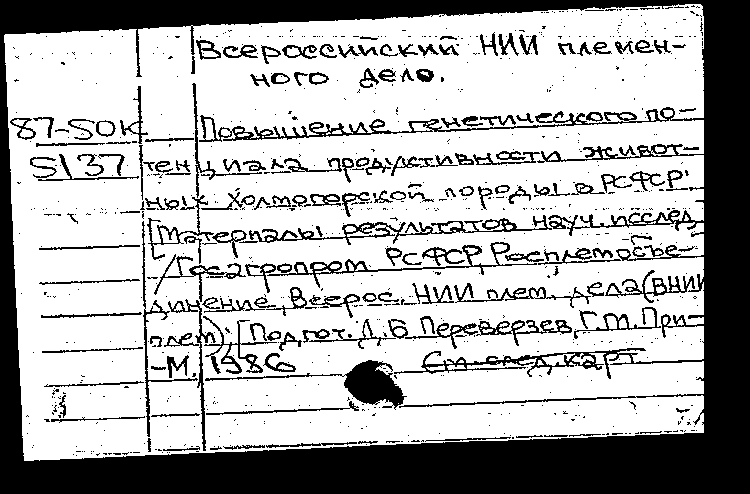 Всероссийский НИИ племен-
ного дело.
87-50К Повышение генетического по-
5137 тенциала продуктивности живот-
ных Холмогорской породы в РСФСР:
[Материалы результатов науч. исслед.
/Госагропром РСФСР, Росплемобъе-
динение, Всерос. НИИ плем. дела (ВНИИ
плем); [Подгот. Д.Б. Переверзев, Г.М. При-
-М., 1986 См. след. карт